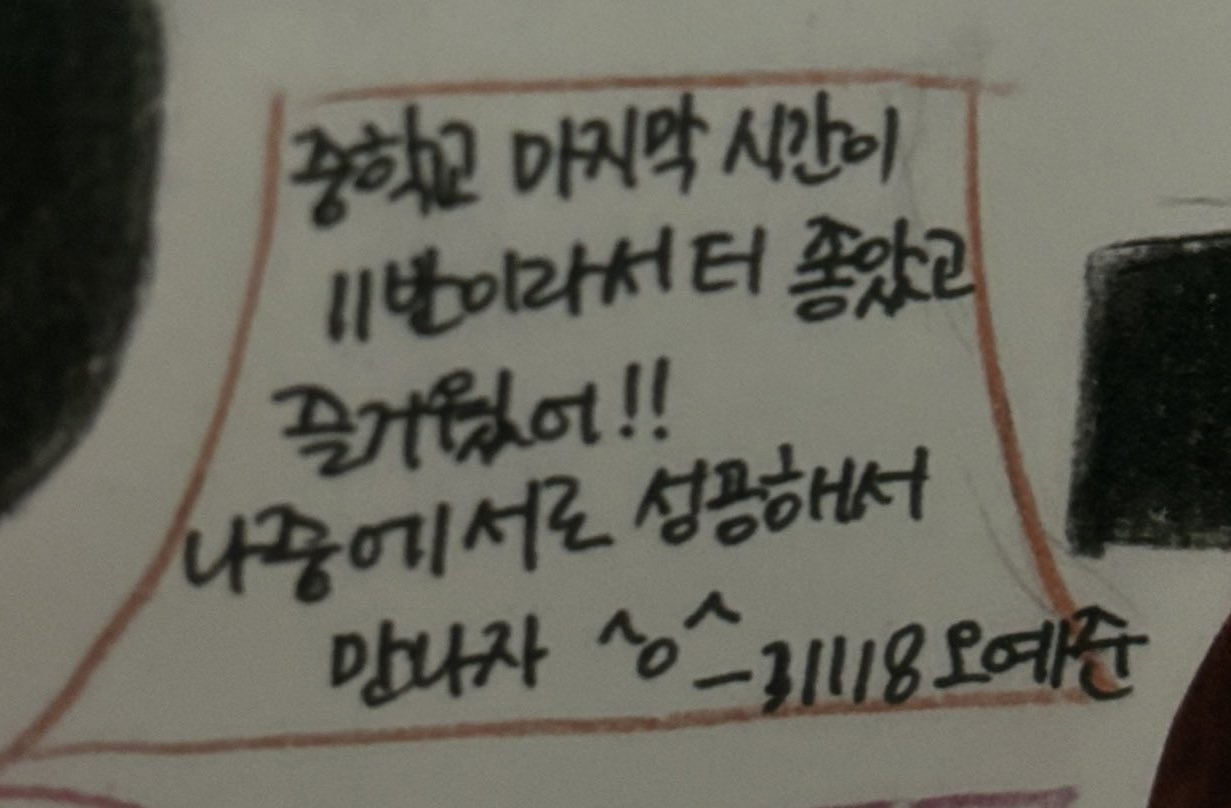 중학교 마지막 시간이
11반이라서 터 좋았고
즐거웠어!!
나중에 서로 성공해서
만나자 ^o^ _31118 오예준